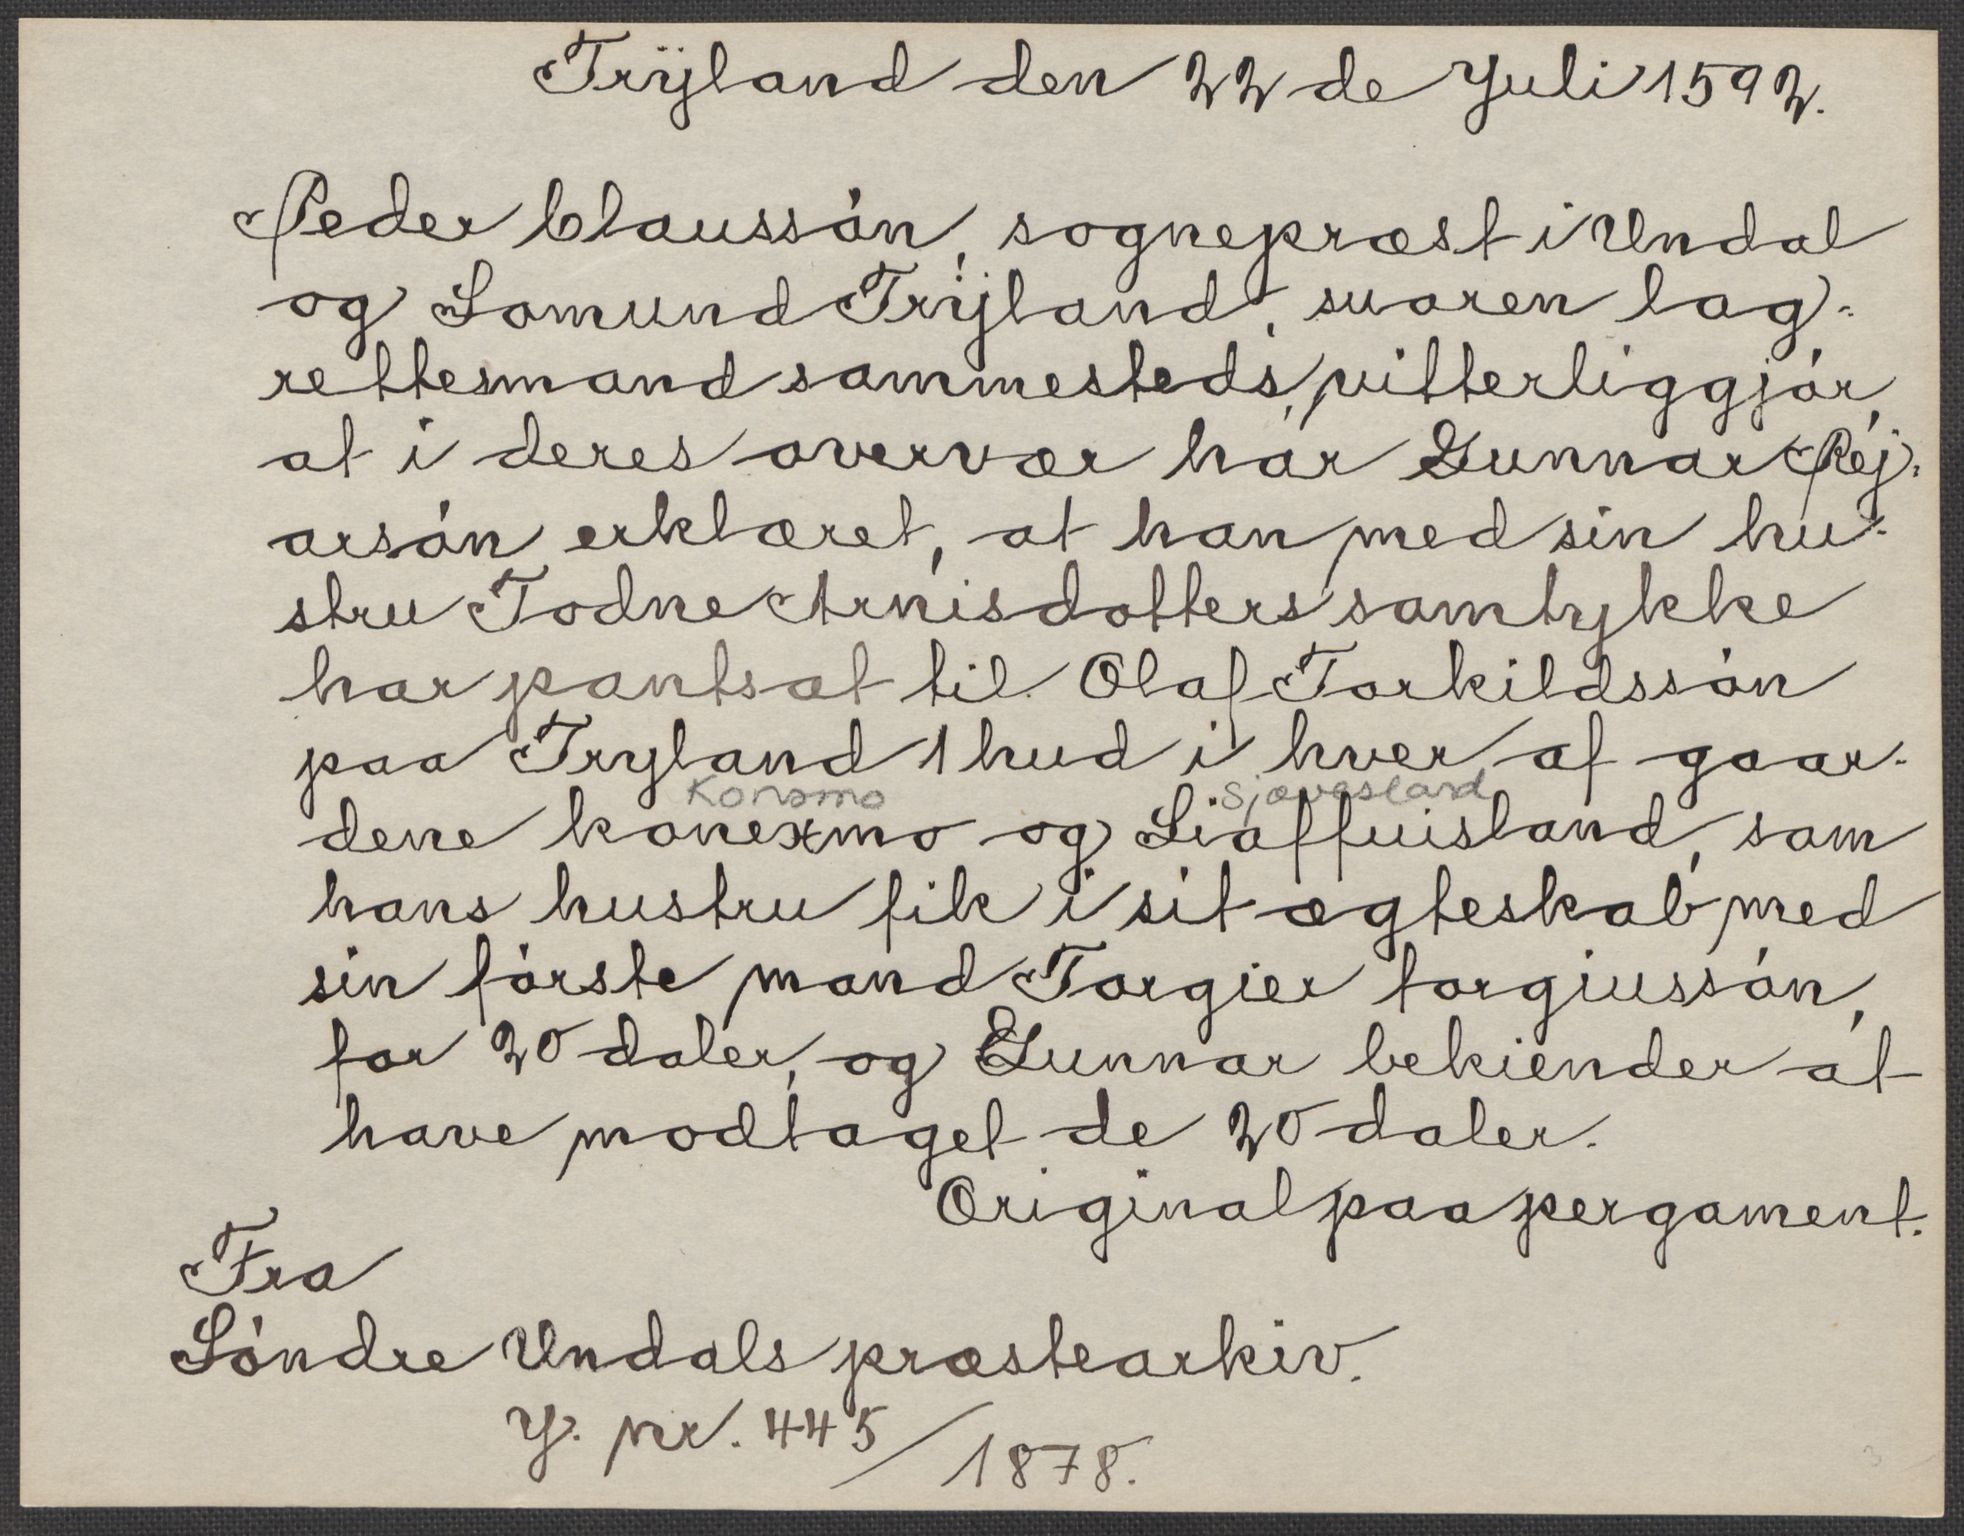 Trÿland den 22 de Juli 1592.
Peder Claussön, sognepræst i Undal
og Somund Trÿland, suoren lag-
rettesmand sammesteds, vitterliggjör,
at i deres overvær har Gunnar Rej-
arsön erklæret, at han med sin hu-
stru Todne Arnisdotters samtykke
har pantsat til Olaf Torkildssön
paa Tryland 1 hud i hver af gaar-
Konsmo Sjøvesland
dene konexmo og Siaffuisland, som
hans hustru fik i sit ægteskab med
sin förste mand Torgier torgiussön,
for 20 daler, og Gunnar bekiender at
have modtaget de 20 daler.
Original paa pergament.
Fra
Söndre Undals præstearkiv.
J. nr. 445/1878.
3